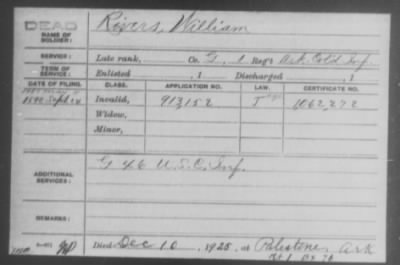 DEAD
NAME OF SOLDIER: Rivers, William
SERVICE: Late rank, Co. G, 1 Reg't Ark Cold Inf.
TERM OF SERVICE: Enlisted , 1 Discharged , 1
DATE OF FILING. CLASS. APPLICATION NO. LAW. CERTIFICATE NO.
1890 Sept Invalid, 913,152 1062,272
Widow,
Minor,
ADDITIONAL SERVICES: G 46 U.S.C. Inf.
REMARKS:
Died Dec 10, 1925, at Palestine, Ark
Rt 1 Bx 76